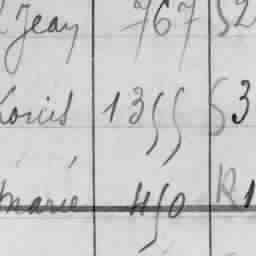 Jean 767 52
Louis 1355 53
Marie 450 R1